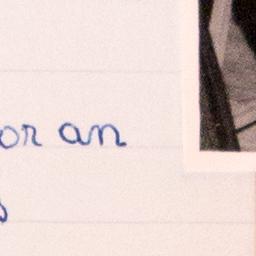 or an